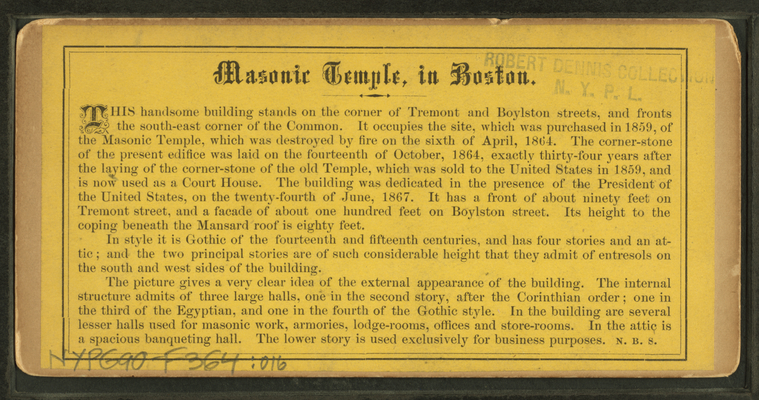 Masonic Temple, in Boston.
ROBERT DENNIS COLLECTION
N. Y. P. L.
THIS handsome building stands on the corner of Tremont and Boylston streets, and fronts
the south-east corner of the Common. It occupies the site, which was purchased in 1859, of
the Masonic Temple, which was destroyed by fire on the sixth of April, 1864. The corner-stone
of the present edifice was laid on the fourteenth of October, 1864, exactly thirty-four years after
the laying of the corner-stone of the old Temple, which was sold to the United States in 1859, and
is now used as a Court House. The building was dedicated in the presence of the President of
the United States, on the twenty-fourth of June, 1867. It has a front of about ninety feet on
Tremont street, and a facade of about one hundred feet on Boylston street. Its height to the
coping beneath the Mansard roof is eighty feet.
In style it is Gothic of the fourteenth and fifteenth centuries, and has four stories and an at-
tic; and the two principal stories are of such considerable height that they admit of entresols on
the south and west sides of the building.
The picture gives a very clear idea of the external appearance of the building. The internal
structure admits of three large halls, one in the second story, after the Corinthian order; one in
the third of the Egyptian, and one in the fourth of the Gothic style. In the building are several
lesser halls used for masonic work, armories, lodge-rooms, offices and store-rooms. In the attic is
a spacious banqueting hall. The lower story is used exclusively for business purposes. N. B. S.
NYPG90-F364:016